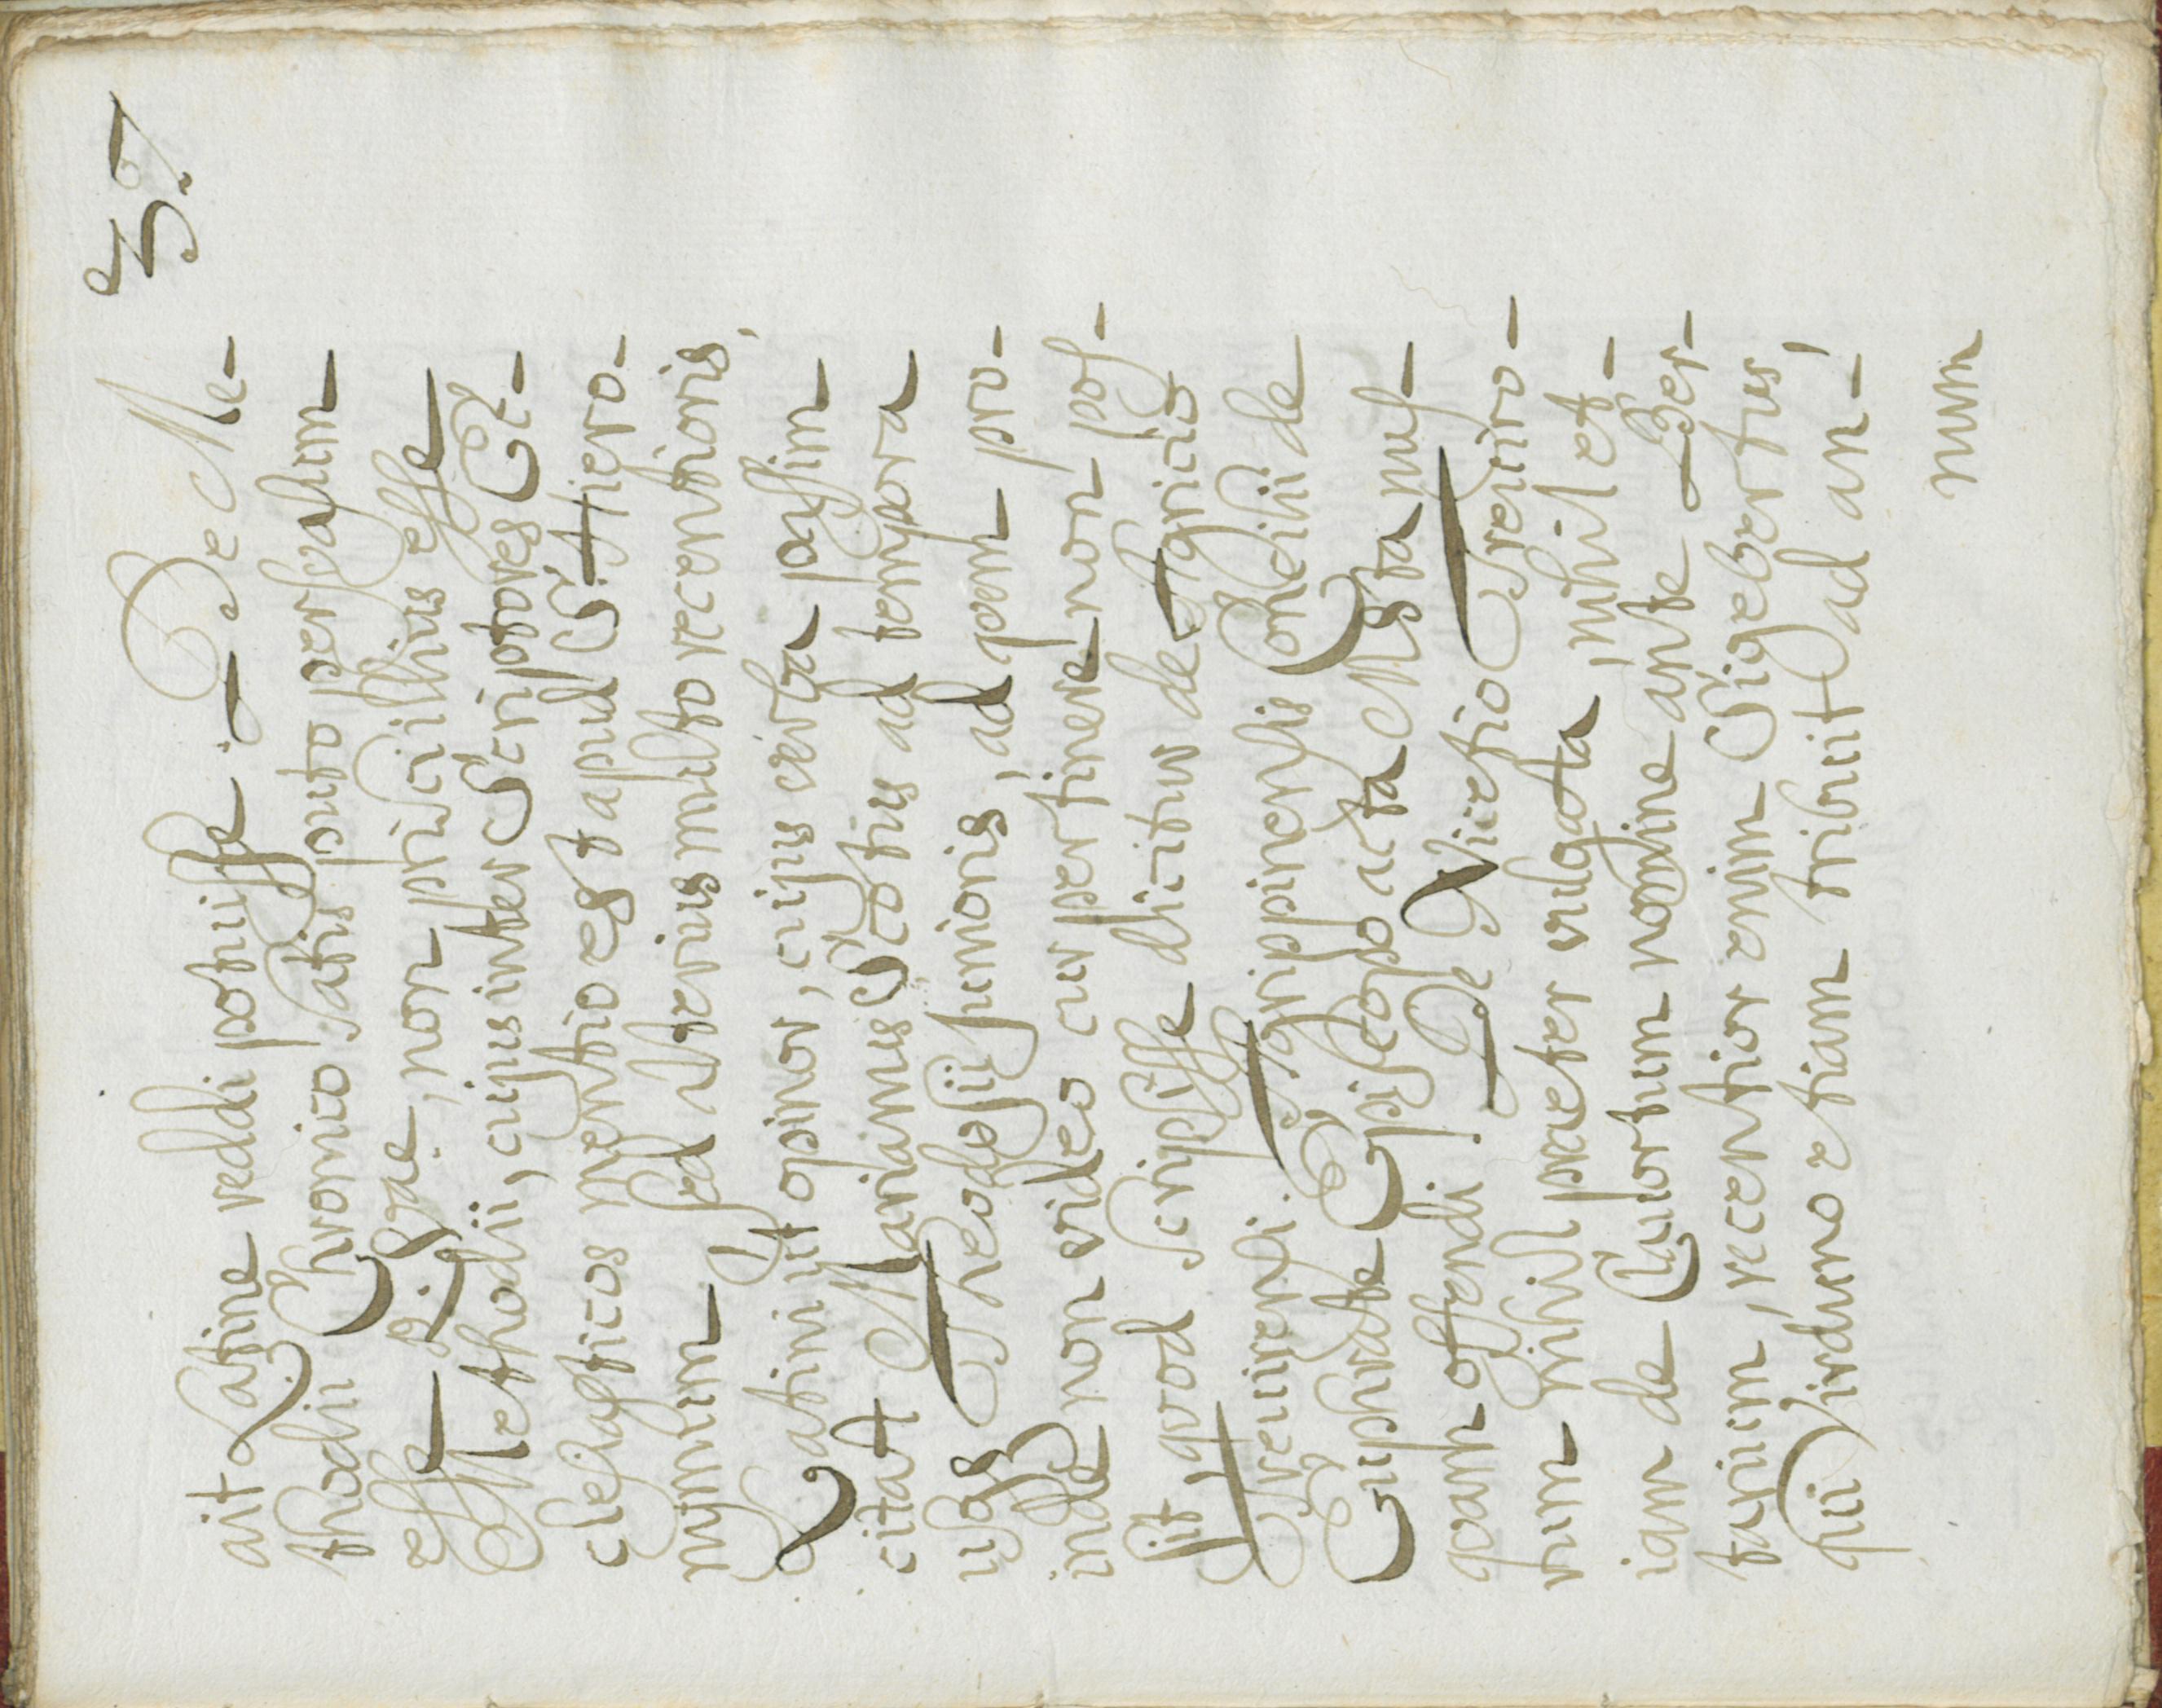 57
ait Latine reddi potuisse. De Me-
thodii Chronico satis puto persuasum
esse Vrae, non prisci illius esse
Methodii, cujus inter Scriptores Ec-
clesiasticos mentio est apud S. Hiero-
nymum sed alterius multo recentioris,
Latini ut opinor, cujus verba passim
citat Marianus Scotus ad tempora
usq Theodosii junioris, ad quem pro-
inde non video cur pertinere non pos-
sit, quod scripsisse dicitur de Agricio
Treuirensi. Agrippinensis Concilii de
Euphrate Episcopo acta Msta nus-
quam offendi. De Vicetio Treuiro-
rum nihil praeter vulgata, nihil et-
iam de Clauorum nomine ante Ber-
tarium, recentior enim Sigebertus,
qui Virduno etiam tribuit ad an-
num